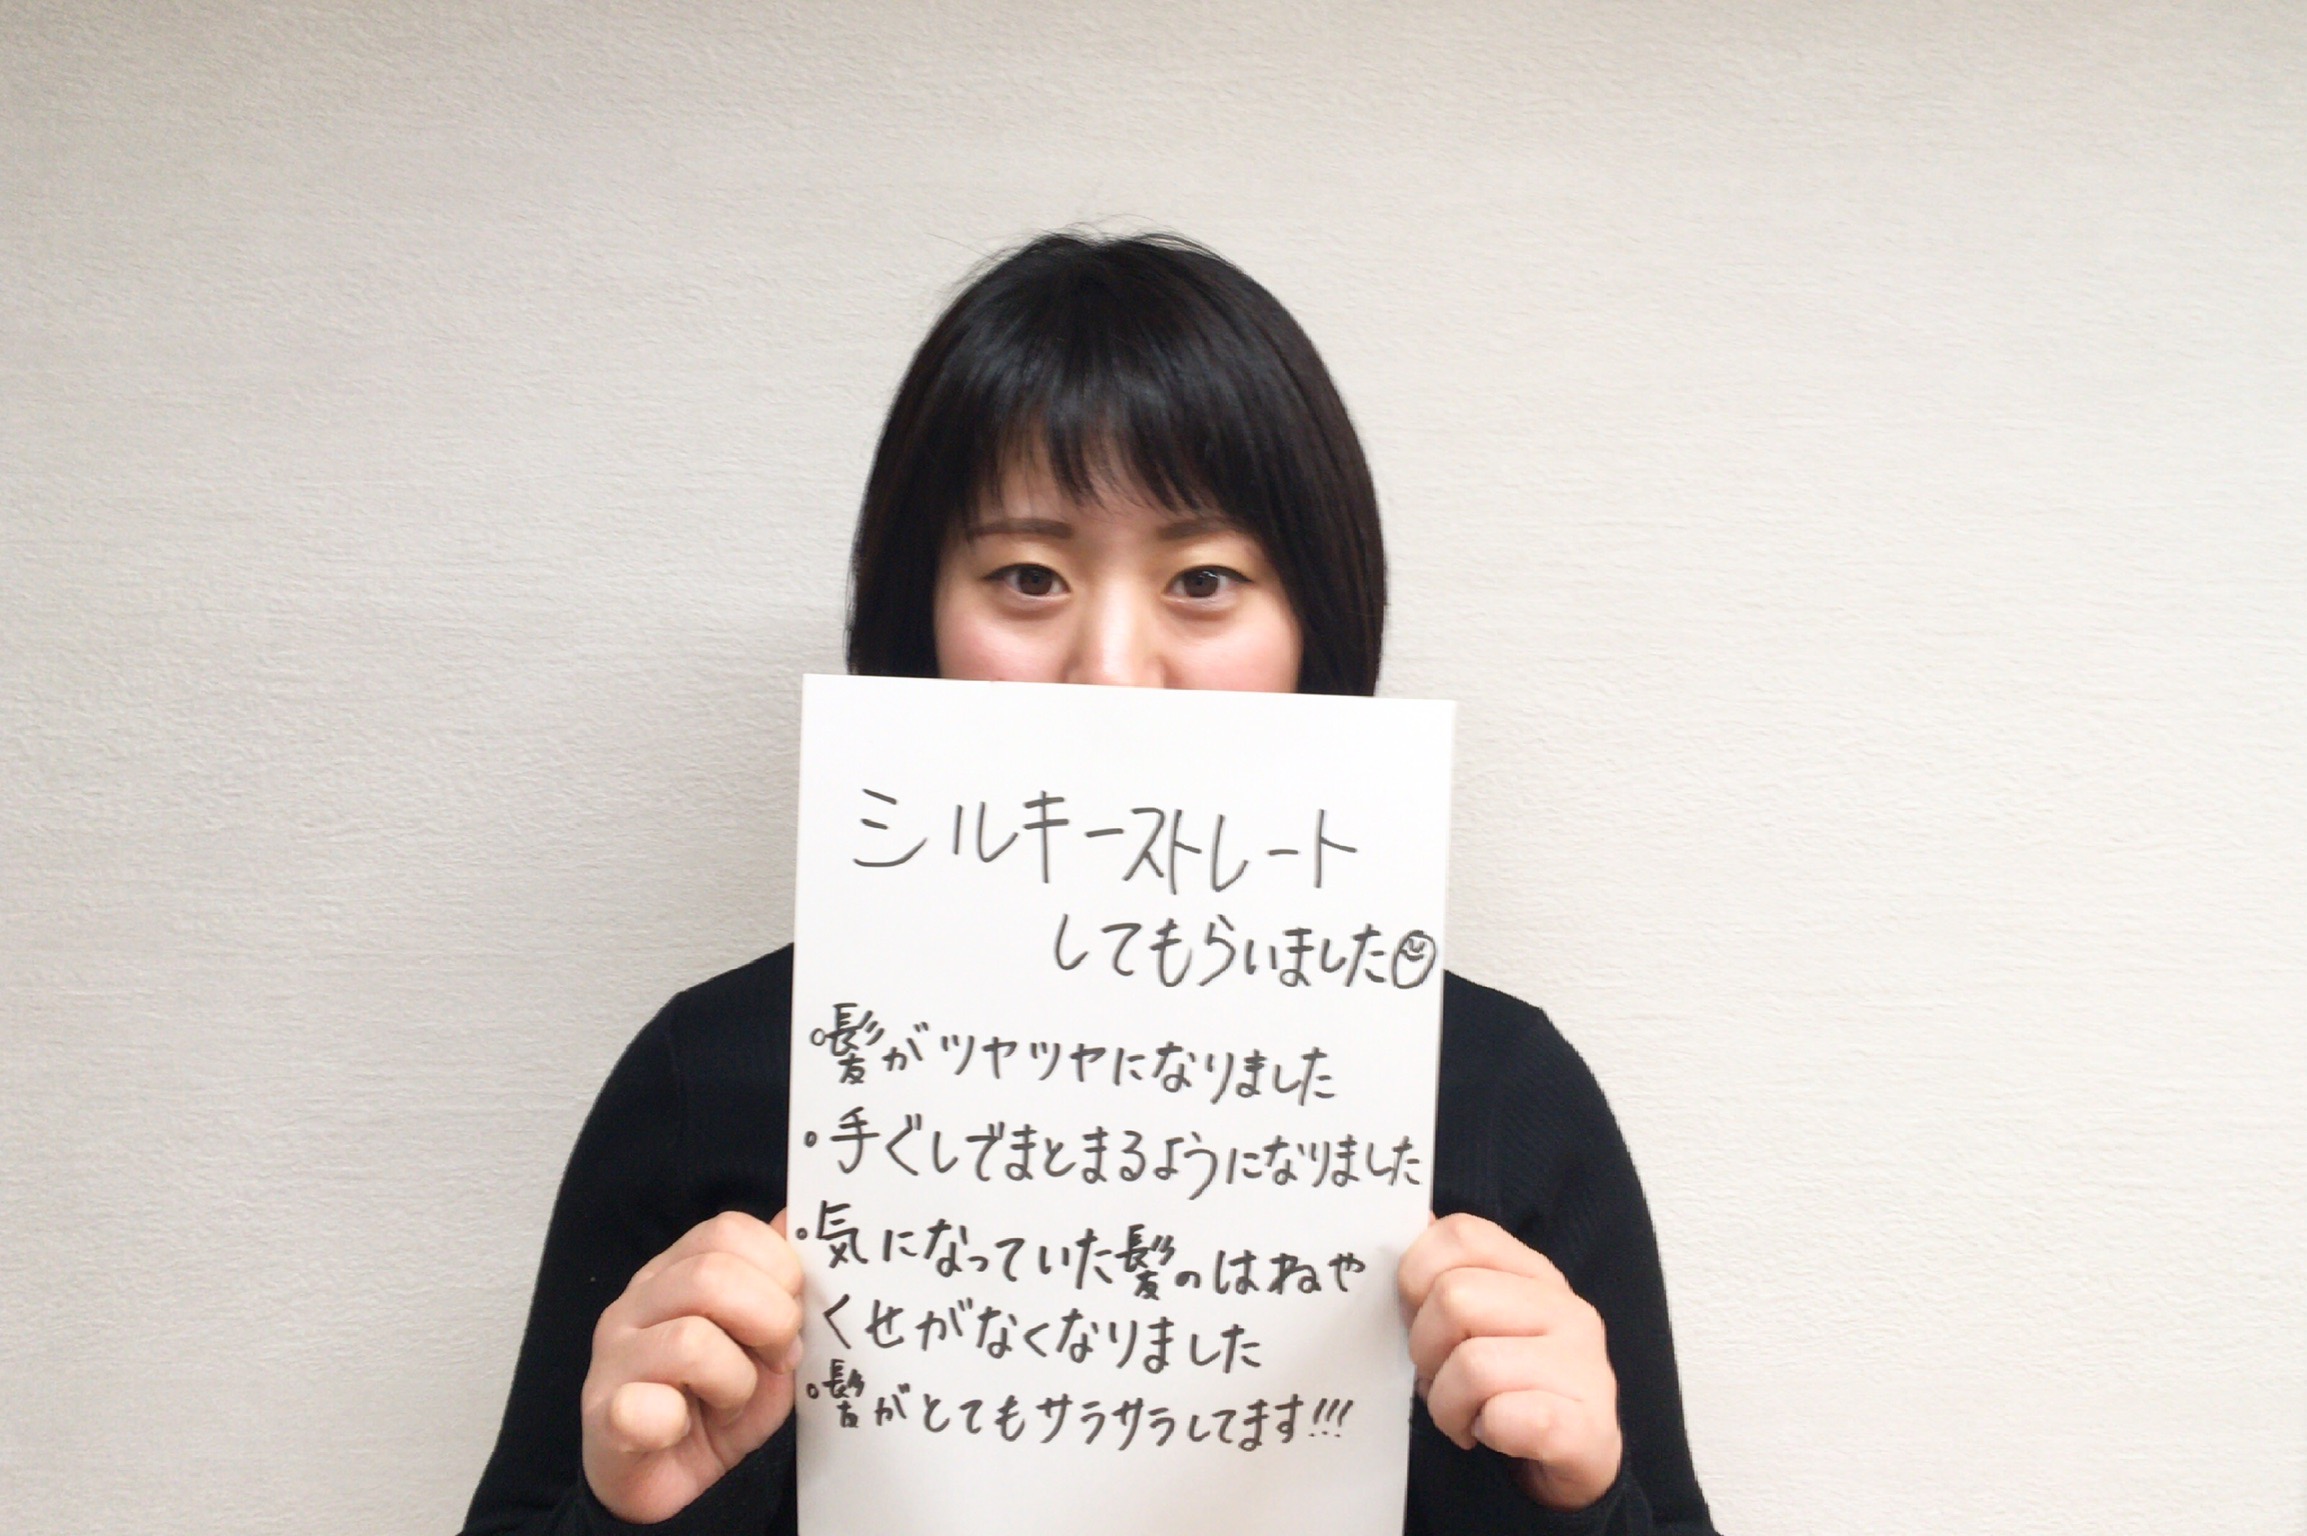 シルキーストレート
してもらいました
。髪がツヤツヤになりました
。手ぐしでまとまるようになりました
。気になっていた髪のはねや
くせがなくなりました
。髪がとてもサラサラしてます!!!